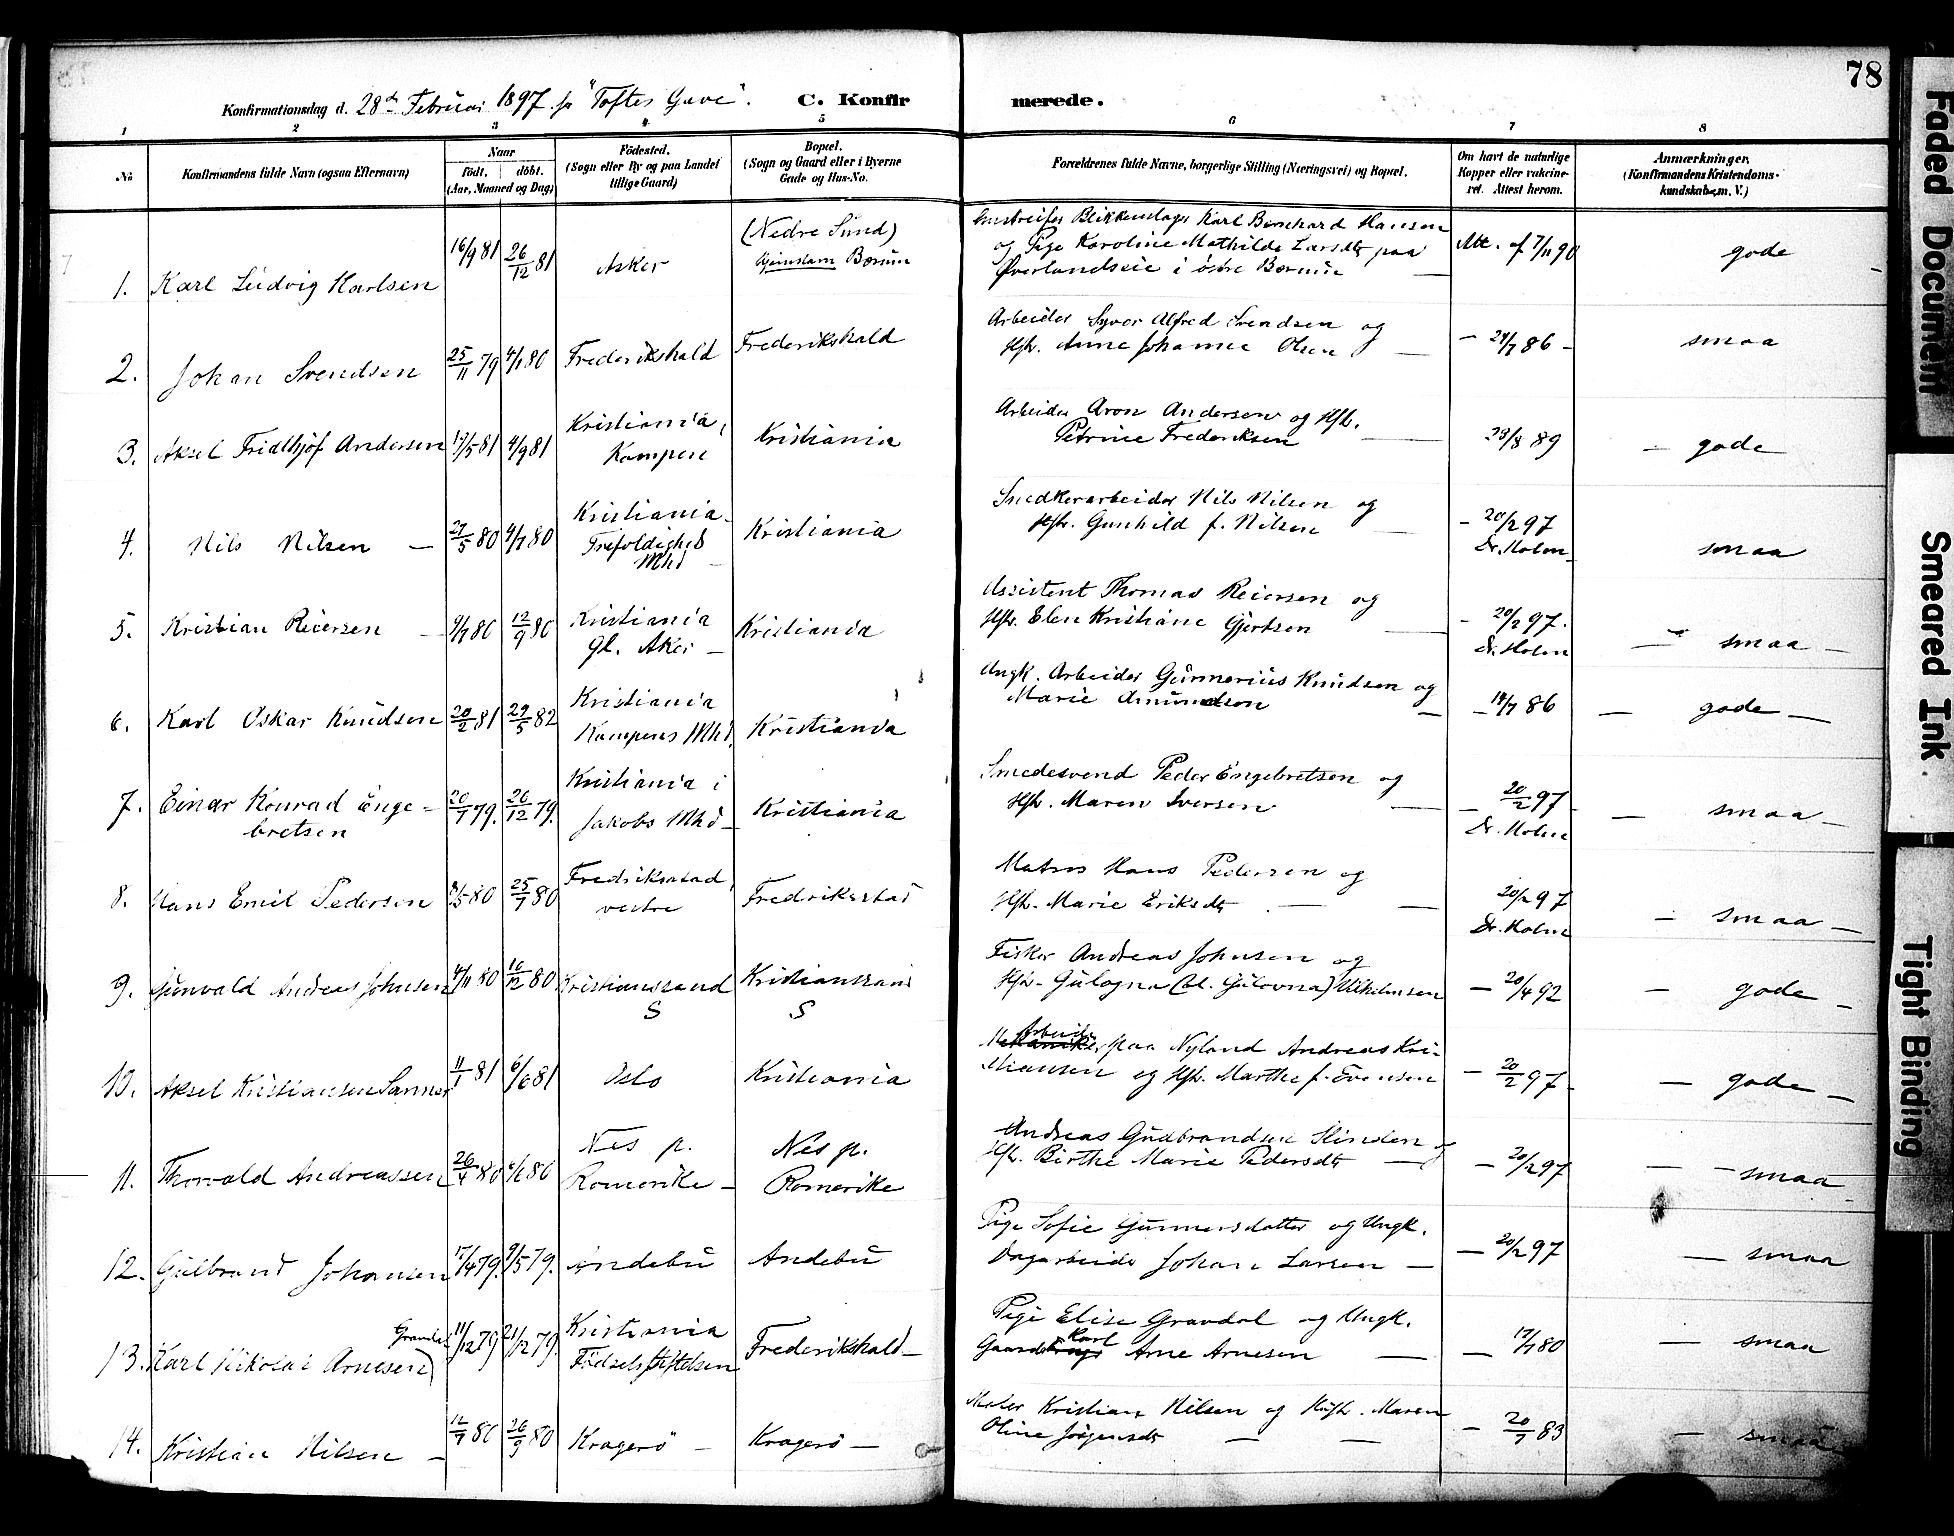 78
Konfirmationsdag d. 28de Februar 1897 p "Toftes Gave". C. Konfirmerede.
1 2 3 4 5 6 7 8
No
Konfirmandens fulde Navn (ogsaa Efternavn)
Naar
födt. döbt.
(Aar, Maaned og Dag)
Födested.
(Sogn eller By og paa Landet
tillige Gaard)
Bopæl.
(Sogn og Gaard eller i Byerne
Gade og Hus-No.
Forældrenes fulde Navne, borgerlige Stilling (Næringsvei) og Bopæl.
Om havt de naturlige
Kopper eller vakcine-
ret. Attest herom.
Anmærkninger.
(Konfirmandens Kristendoms-
kundskab, m. V.)
1. Karl Ludvig Karlsen 16/9 81 26/12 81 Asker
(Nedre Sund)
Bærum
Blikkenslager Karl Bernhard Hansen
og Pige Karoline Mathilde Larsdtr paa
Øverlandseie i østre Bærum
Att. af 7/11 90 gode
2. Johan Svendsen 25/11 79 4/1 80 Frederikshald Frederikshald
Arbeider Syver Alfred Svendsen og
Hstr. Anne Johanne Olsen
86 smaa
3. Aksel Fridthjof Andersen 17/5 81 4/9 81 Kristiania,
Kampen
Kristiania
Arbeider Aron Andersen og Hstr.
Petrine Frederiksen
28/8 89 gode
4. Nils Nilsen 27/5 80 4/7 80 Kristiania
Trefoldighed
Mhd
Kristiania
Snedkerarbeider Nils Nilsen og
Hstr. Gunhild f. Nilsen
20/2 97
Dr. Holm
smaa
5. Kristian Reiersen 9/7 80 12/9 80 Kristiania
Gl. Aker
Kristiania
Assistent Thomas Reiersen og
Hstr. Elen Kristiane Gjertsen
20/2 97.
Dr. Holm
smaa
6. Karl Oskar Knudsen 20/2 81 29/5 82 Kristiania
Kampens Mhd.
Kristiania
Ungk. Arbeider Gunnerius Knudsen og
Marie Amundsen
14/7 86 gode
7. Einar Konrad Enge-
bretsen
20/7 79. 26/12 79. Kristiania i
Jakobs Mhd
Kristiania
Smedesvend Peder Engebretsen og
Hstr. Maren Iversen
20/2 97
Dr. Holm
smaa
8. Hans Emil Pedersen 80 25/7 80 Fredriksstad,
vestre
Fredriksstad
Matros Hans Pedersen og
Hstr. Marie Eriksdtr
20/2 97
Dr. Holm
smaa
9. Gunvald Andreas Johnsen 4/11 80 80 Kristianssand
S
Kristianssand
S
Fisker Andreas Johnsen og
Hstr. Gulogna (el. Gulovna) Vilhelmsen
20/4 92 gode
10. Aksel Kristiansen Sanner 11/1 81 6/6 81 Oslo Kristiania
Arbeider
paa Nyland Andreas Kri-
stiansen og Hstr. Marthe f. Evensen
20/2 97 gode
11. Thorvald Andreassen 26/4 80 80 Nes p.
Romerike
Nes p.
Romerike
Andreas Gudbrandsen Slinden og
Hstr. Birthe Marie Pedersdtr
20/2 97 smaa
12. Gulbrand Johansen 17/4 79. 9/5 79. Andebu Andebu
Pige Sofie Gunnersdatter og Ungk.
Dagarbeider Johan Larsen
20/2 97 smaa
13. Karl Nikolai Arnesen) Gravdal 11/12 79 21/12 79. Kristiania
Fødselsstiftelsen
Frederikshald
Pige Elise Gravdal og Ungk.
Karl
Arne Arnesen
80 smaa
14. Kristian Nilsen 12/7 80 26/9 80 Kragerø Kragerø
Maler Kristian Nilsen og Hstr. Maren
Oline Jørgensdtr
20/7 83 smaa
Faded Document
Smeared Ink
Tight Binding